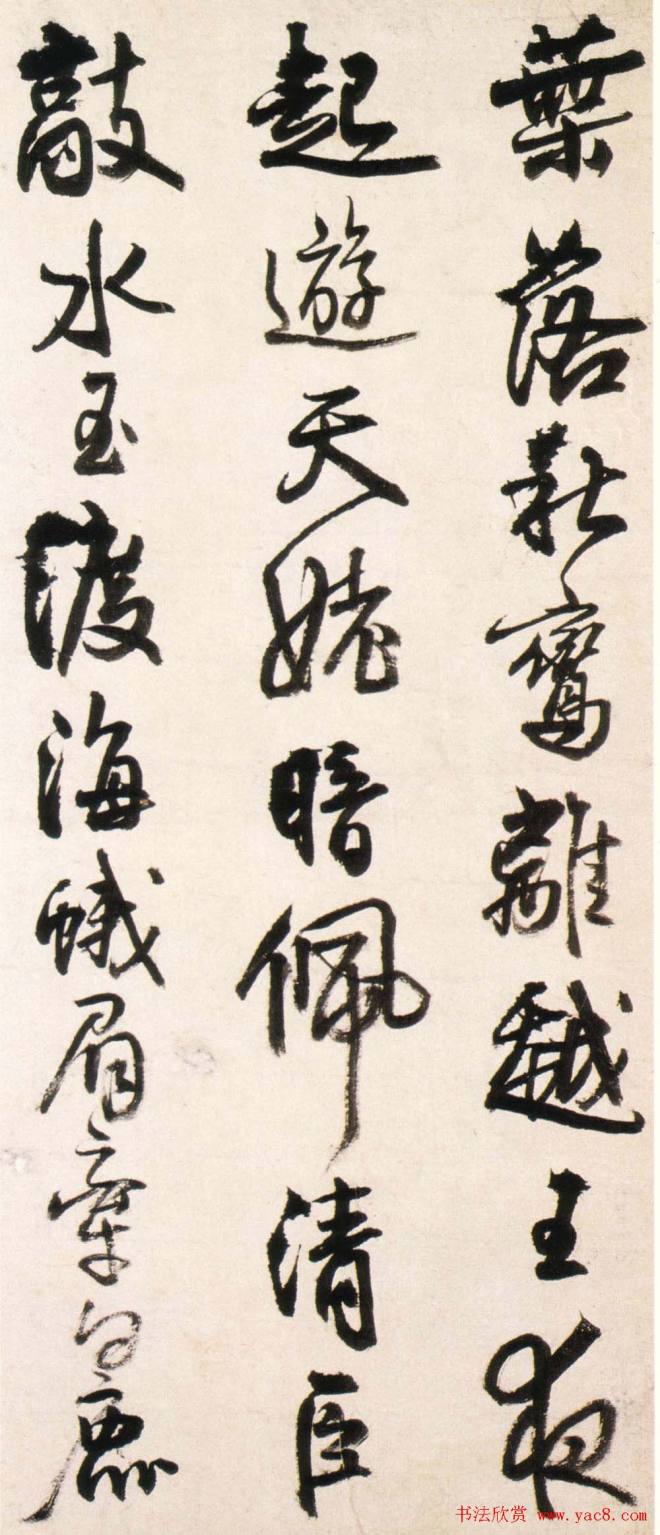 葉落秋鸞離越王夜
起遊天姥暗佩清臣
敲水玉渡海蛾眉牽白鹿
书法欣赏 www.yac8.com